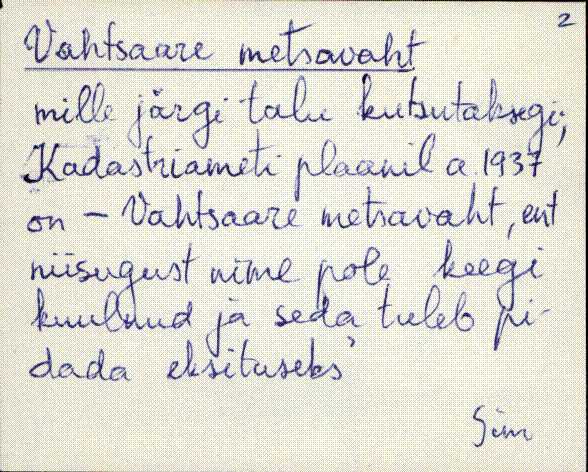 2
Vahtsaare metsavaht
mille järgi talu kutsutaksegi;
Kadastriameti plaanil a. 1937
on – Vahtsaare metsavaht, ent
niisugust nime pole keegi
kuulnud ja seda tuleb pi-
dada eksituseks